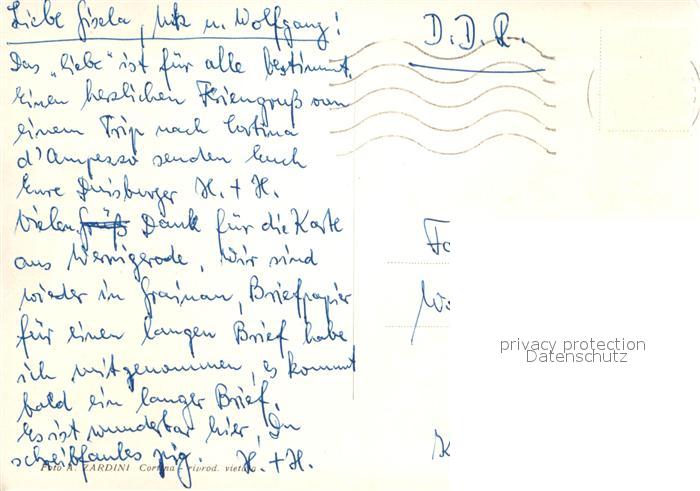 Liebe Gisela, Mik u. Wolfgang!
Das "Liebe" ist für alle bestimmt.
Einen herzlichen Feriengruß von
einem Trip nach Cortina
d'Ampezzo senden Euch
Eure Duisburger H. + H.
Vielen Dank für die Karte
aus Wernigerode, Wir sind
wieder in Grainau, Briefpapier
für einen langen Brief habe
ich mitgenommen, es kommt
bald ein langer Brief.
Es ist wunderbar hier, Dn
schreibfaules H. + H.
Foto A. ZARDINI Cortina - riprod. vietata
D. D. R.
privacy protection
Datenschutz